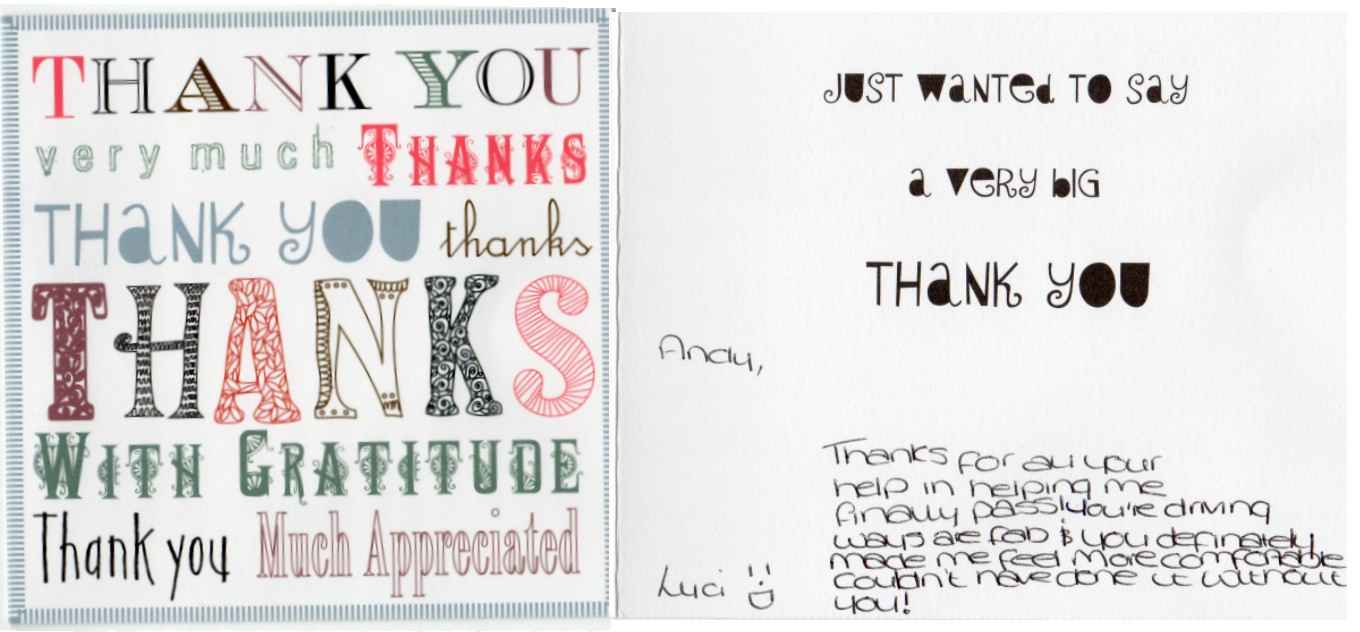 THANK YOU
very much THANKS
THANK YOU thanks
THANKS
WITH GRATITUDE
Thank you Much Appreciated
JUST WANTED TO SAY
a VERY BIG
THANK YOU
Andy,
Thanks for all your
help in helping me
finally pass! You're driving
ways are fab & you definately
made me feel more comfortable
couldn't have done it without
you!
Luci :D